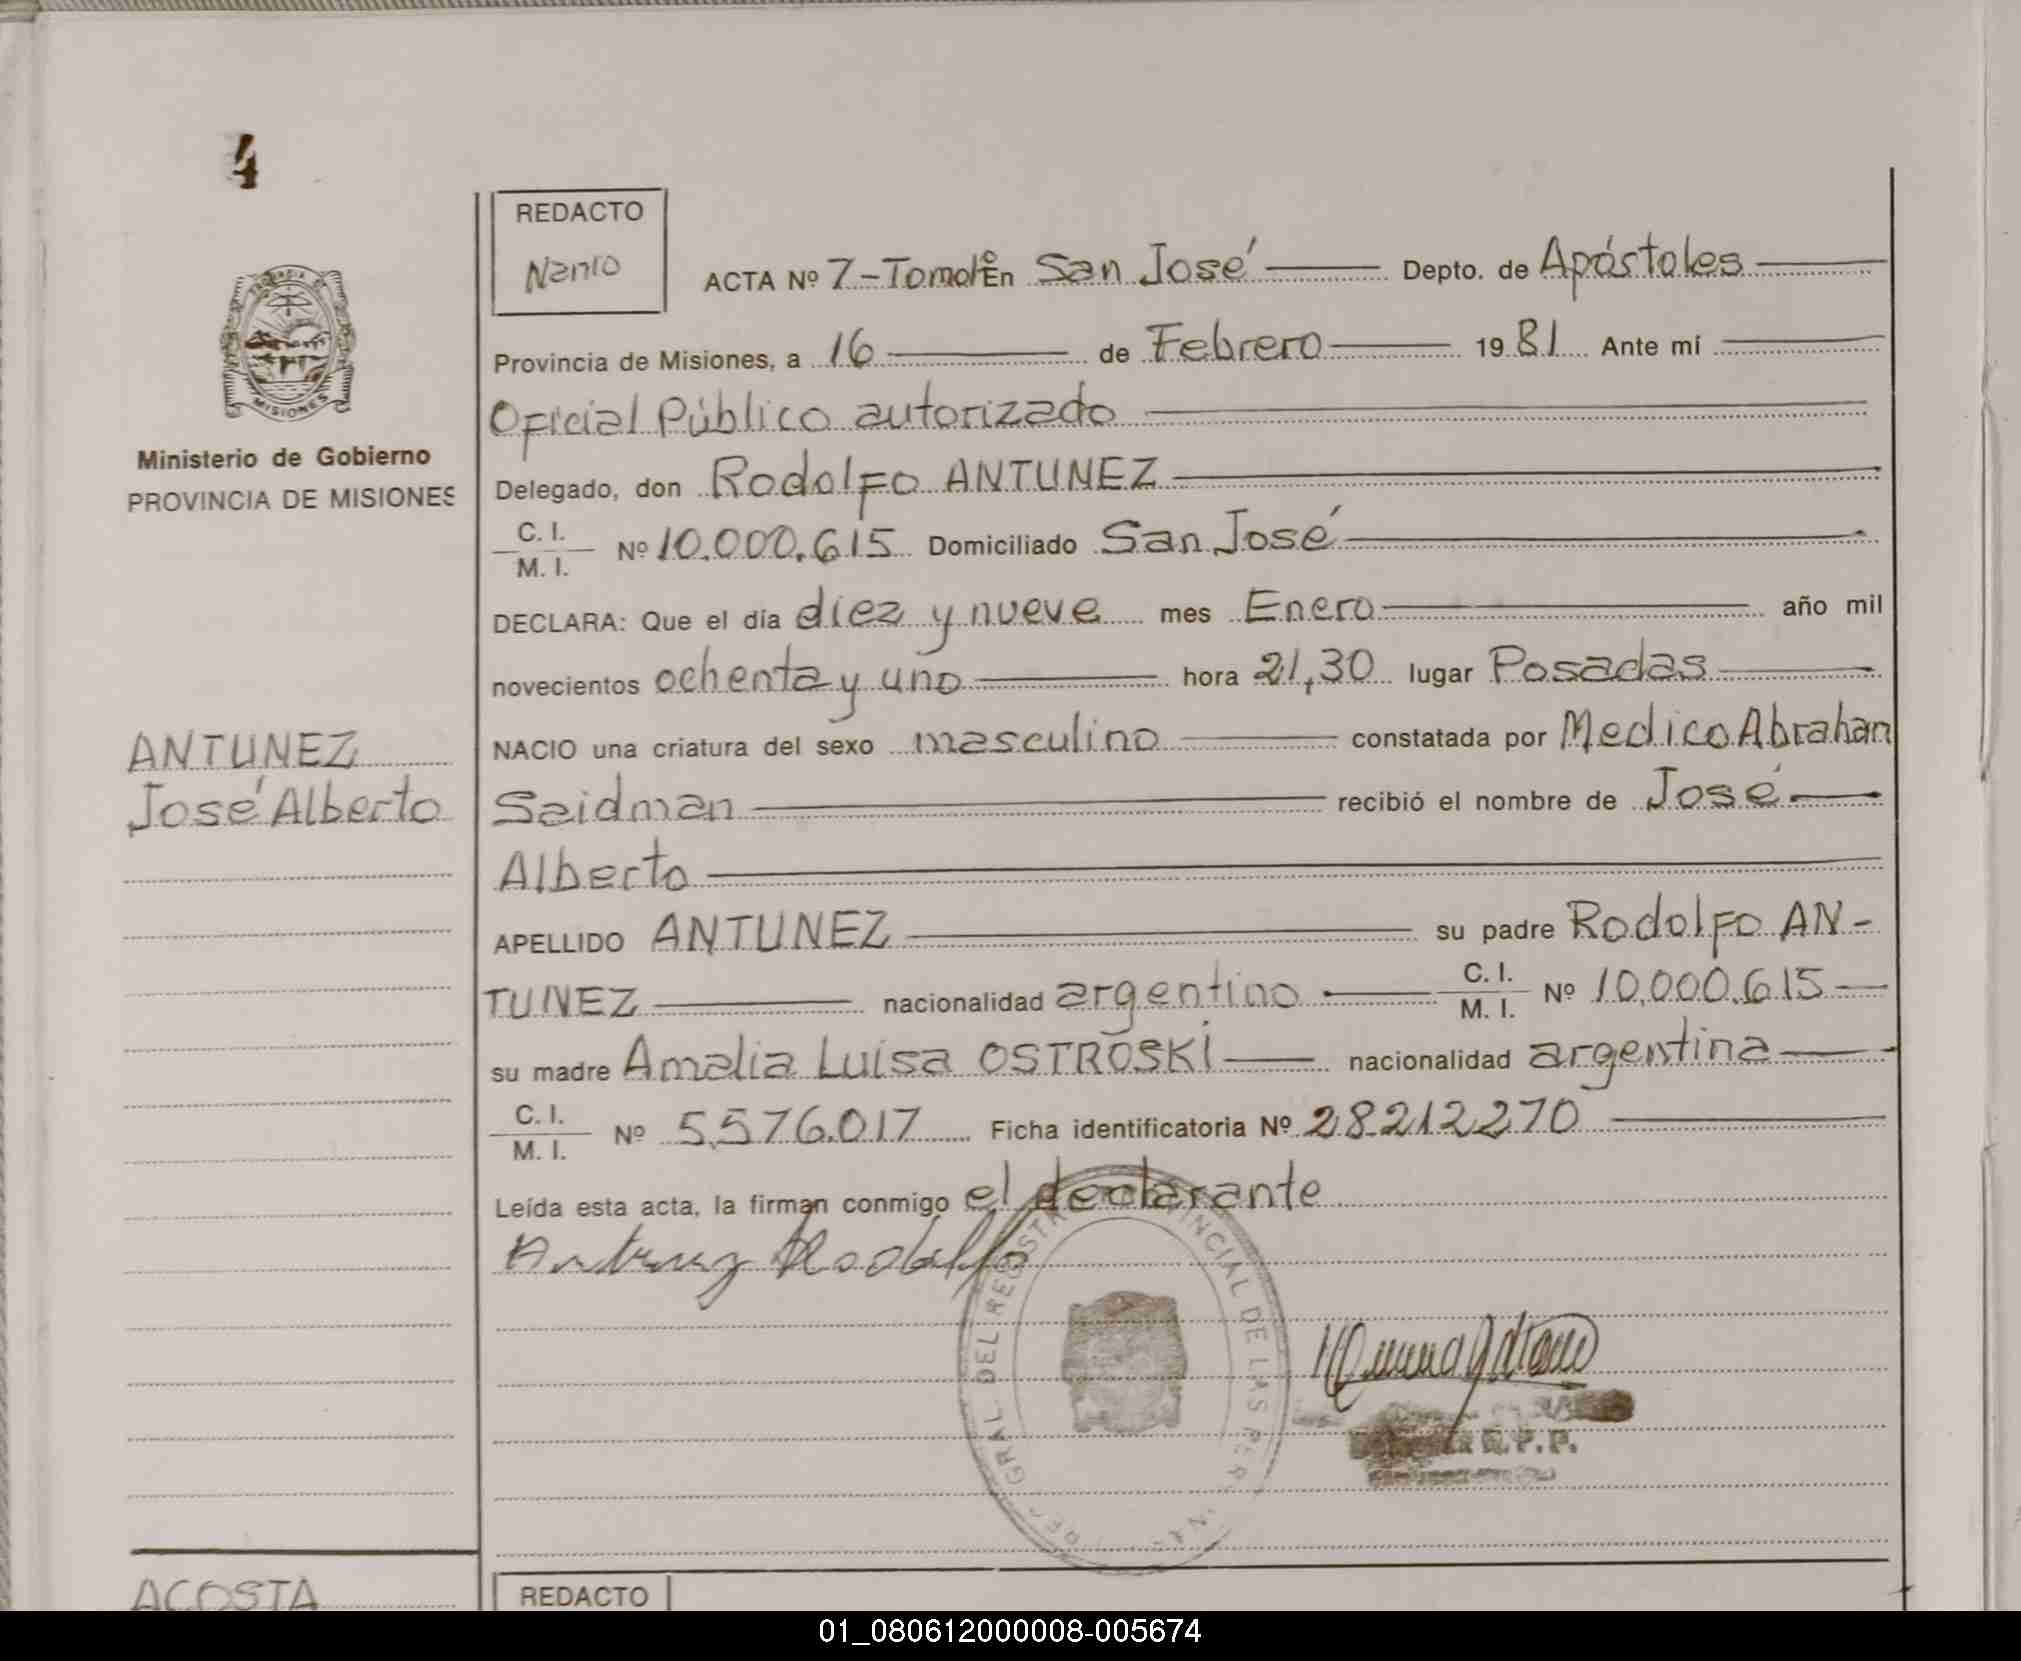 4
REDACTO
Nanio
ACTA Nº 7-Tomo1º En San José Depto. de Apóstoles
Provincia de Misiones, a 16 de Febrero 1981 Ante mí
Oficial Público autorizado
Ministerio de Gobierno
PROVINCIA DE MISIONES
Delegado, don Rodolfo ANTUNEZ
C. I.
M. I. Nº 10.000.615 Domiciliado San José
DECLARA: Que el día diez y nueve mes Enero año mil
novecientos ochenta y uno hora 21,30 lugar Posadas
ANTUNEZ
José Alberto
NACIO una criatura del sexo masculino constatada por Medico Abrahan
Saidman recibió el nombre de José
Alberto
APELLIDO ANTUNEZ su padre Rodolfo AN-
TUNEZ nacionalidad argentino C. I. M. I. Nº 10.000.615
su madre Amalia Luisa OSTROSKI nacionalidad argentina
C. I.
M. I. Nº 5.576.017 Ficha identificatoria Nº 28212270
Leída esta acta, la firman conmigo el declarante
Antunez Rodolfo
GRAL. DEL REGISTRO PROVINCIAL DE LAS PERSONAS
R.P.P.
ACOSTA
REDACTO
01_080612000008-005674